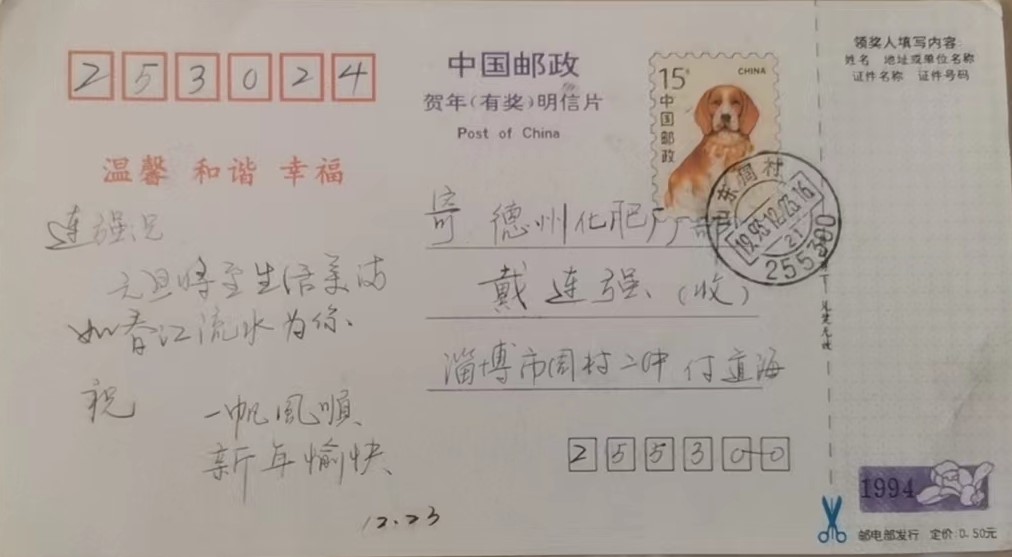 253024
中国邮政
贺年(有奖)明信片
Post of China
15分
CHINA
中国邮政
领奖人填写内容:
姓名 地址或单位名称
证件名称 证件号码
温馨 和谐 幸福
连强兄
元旦将至生活美满
如春江流水为你、
祝
一帆風順、
新年愉快、
12.23
寄 德州化肥厂厂部
戴连强(收)
淄博市周村二中 付道海
255300
东周村
1993.12.23.16
21
255300
1994
邮电部发行 定价:0.50元